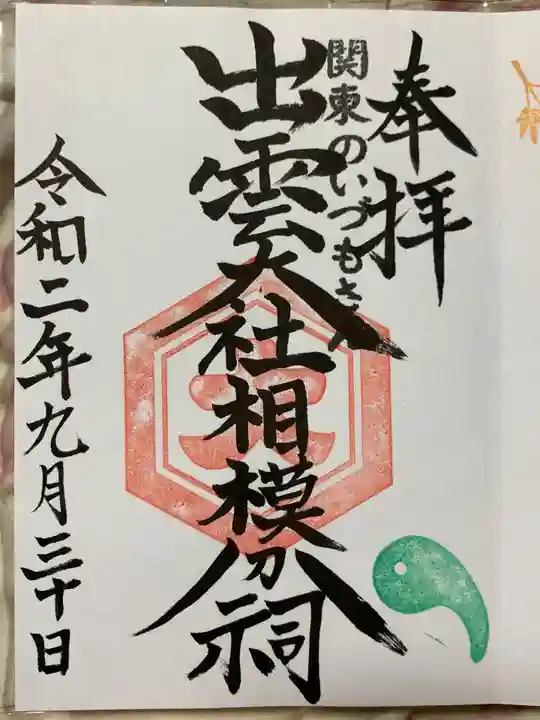 奉拝
関東のいづもさん
出雲大社相模分祠
令和二年九月三十日